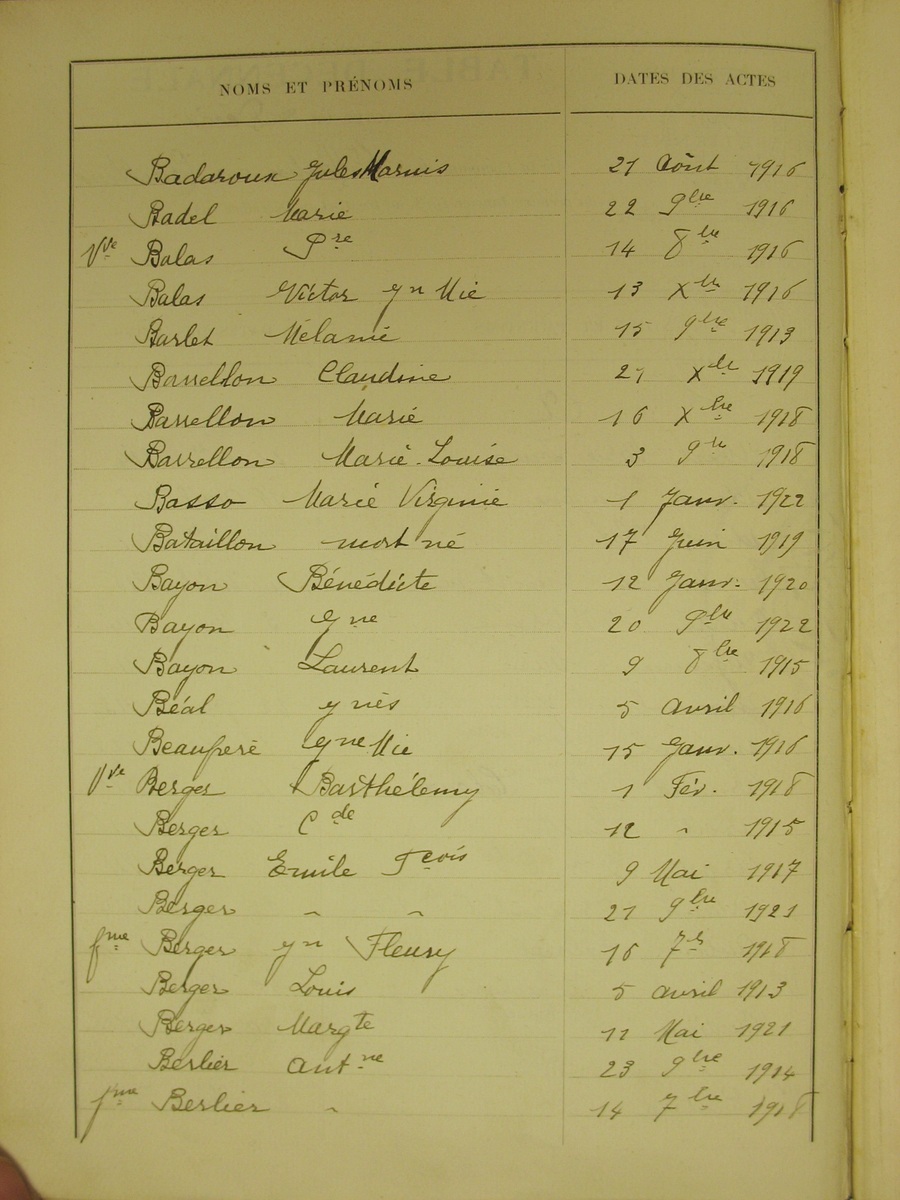 NOMS ET PRÉNOMS DATES DES ACTES
Badaroux Jules Marius 21 Août 1916
Badel Marie 22 9bre 1916
Vve Balas Pre 14 8bre 1916
Balas Victor Jn Mie 13 Xbre 1916
Barlet Mélanie 15 9bre 1913
Barrellon Claudine 21 Xbre 1919
Barrellon Marie 16 Xbre 1918
Barrellon Marie-Louise 3 9bre 1918
Basso Marie Virginie 1 Janv. 1922
Bataillon mort né 17 Juin 1919
Bayon Bénédicte 12 Janv. 1920
Bayon Jne 20 9bre 1922
Bayon Laurent 9 8bre 1915
Béal ynès 5 avril 1916
Beauperé Jne Mie 15 Janv. 1916
Vve Berger Barthélemy 1 Fév. 1918
Berger Cde 12 " 1915
Berger Emile Fcois 9 Mai 1917
Berger " " 21 9bre 1921
fme Berger Jn Fleury 16 1918
Berger Louis 5 avril 1913
Berger Margte 11 Mai 1921
Berlier Antne 23 9bre 1914
fme Berlier " 14 7bre 1918